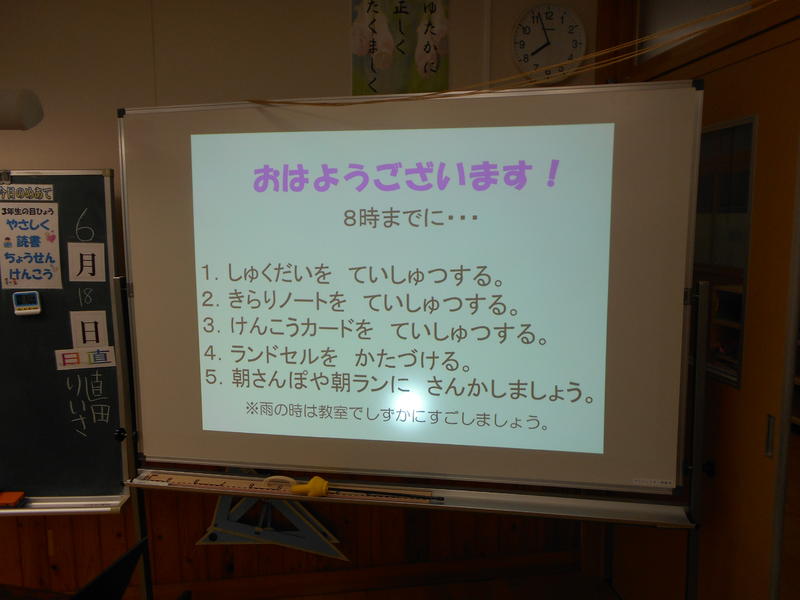 ゆたかに
正しく
たくましく
今日のめあて
3年生の目ひょう
やさしく
読書
ちょうせん
けんこう
6
月
18
日
日直
直田
りいさ
おはようございます！
8時までに・・・
1. しゅくだいを ていしゅつする。
2. きらりノートを ていしゅつする。
3. けんこうカードを ていしゅつする。
4. ランドセルを かたづける。
5. 朝さんぽや朝ランに さんかしましょう。
※雨の時は教室でしずかにすごしましょう。